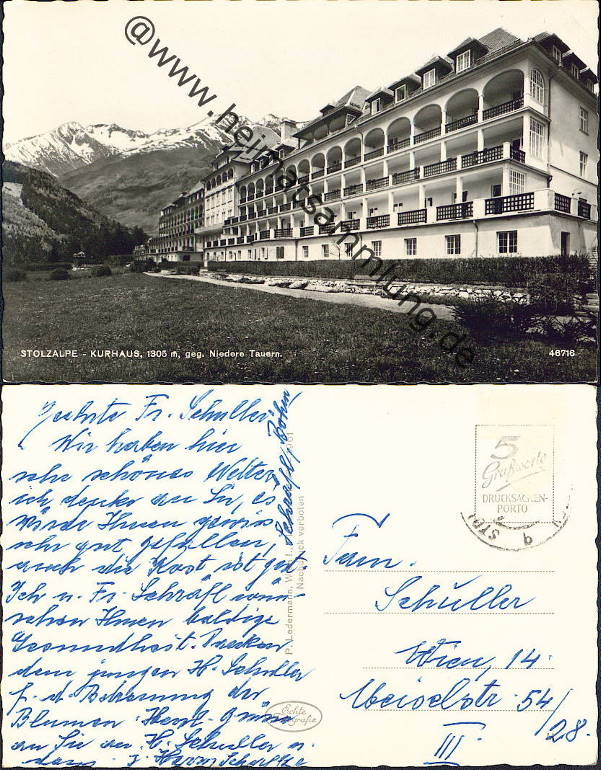 @www.heimatsammlung.de
STOLZALPE - KURHAUS, 1305 m, geg. Niedere Tauern.
46716
Geehrte Fr. Schuller!
Wir haben hier
sehr schönes Wetter
ich denke an Sie, es
würde Ihnen gewiss
sehr gut gefallen,
auch die Kost ist gut.
Ich u. Fr. Schräfl wün-
schen Ihnen baldige
Gesundheit. Danken
dem jungen H. Schuller
f. d. Betreuung der
Blumen. Herzl. Grüsse
an Sie u. H. Schuller u.
P. Ledermann, Wien I.,
Nachdruck verboten
Echte
5 Grußworte
DRUCKSACHEN-
PORTO
STOL
b
Fam.
Schuller
Wien, 14.
Meiselstr. 54/
III 28.